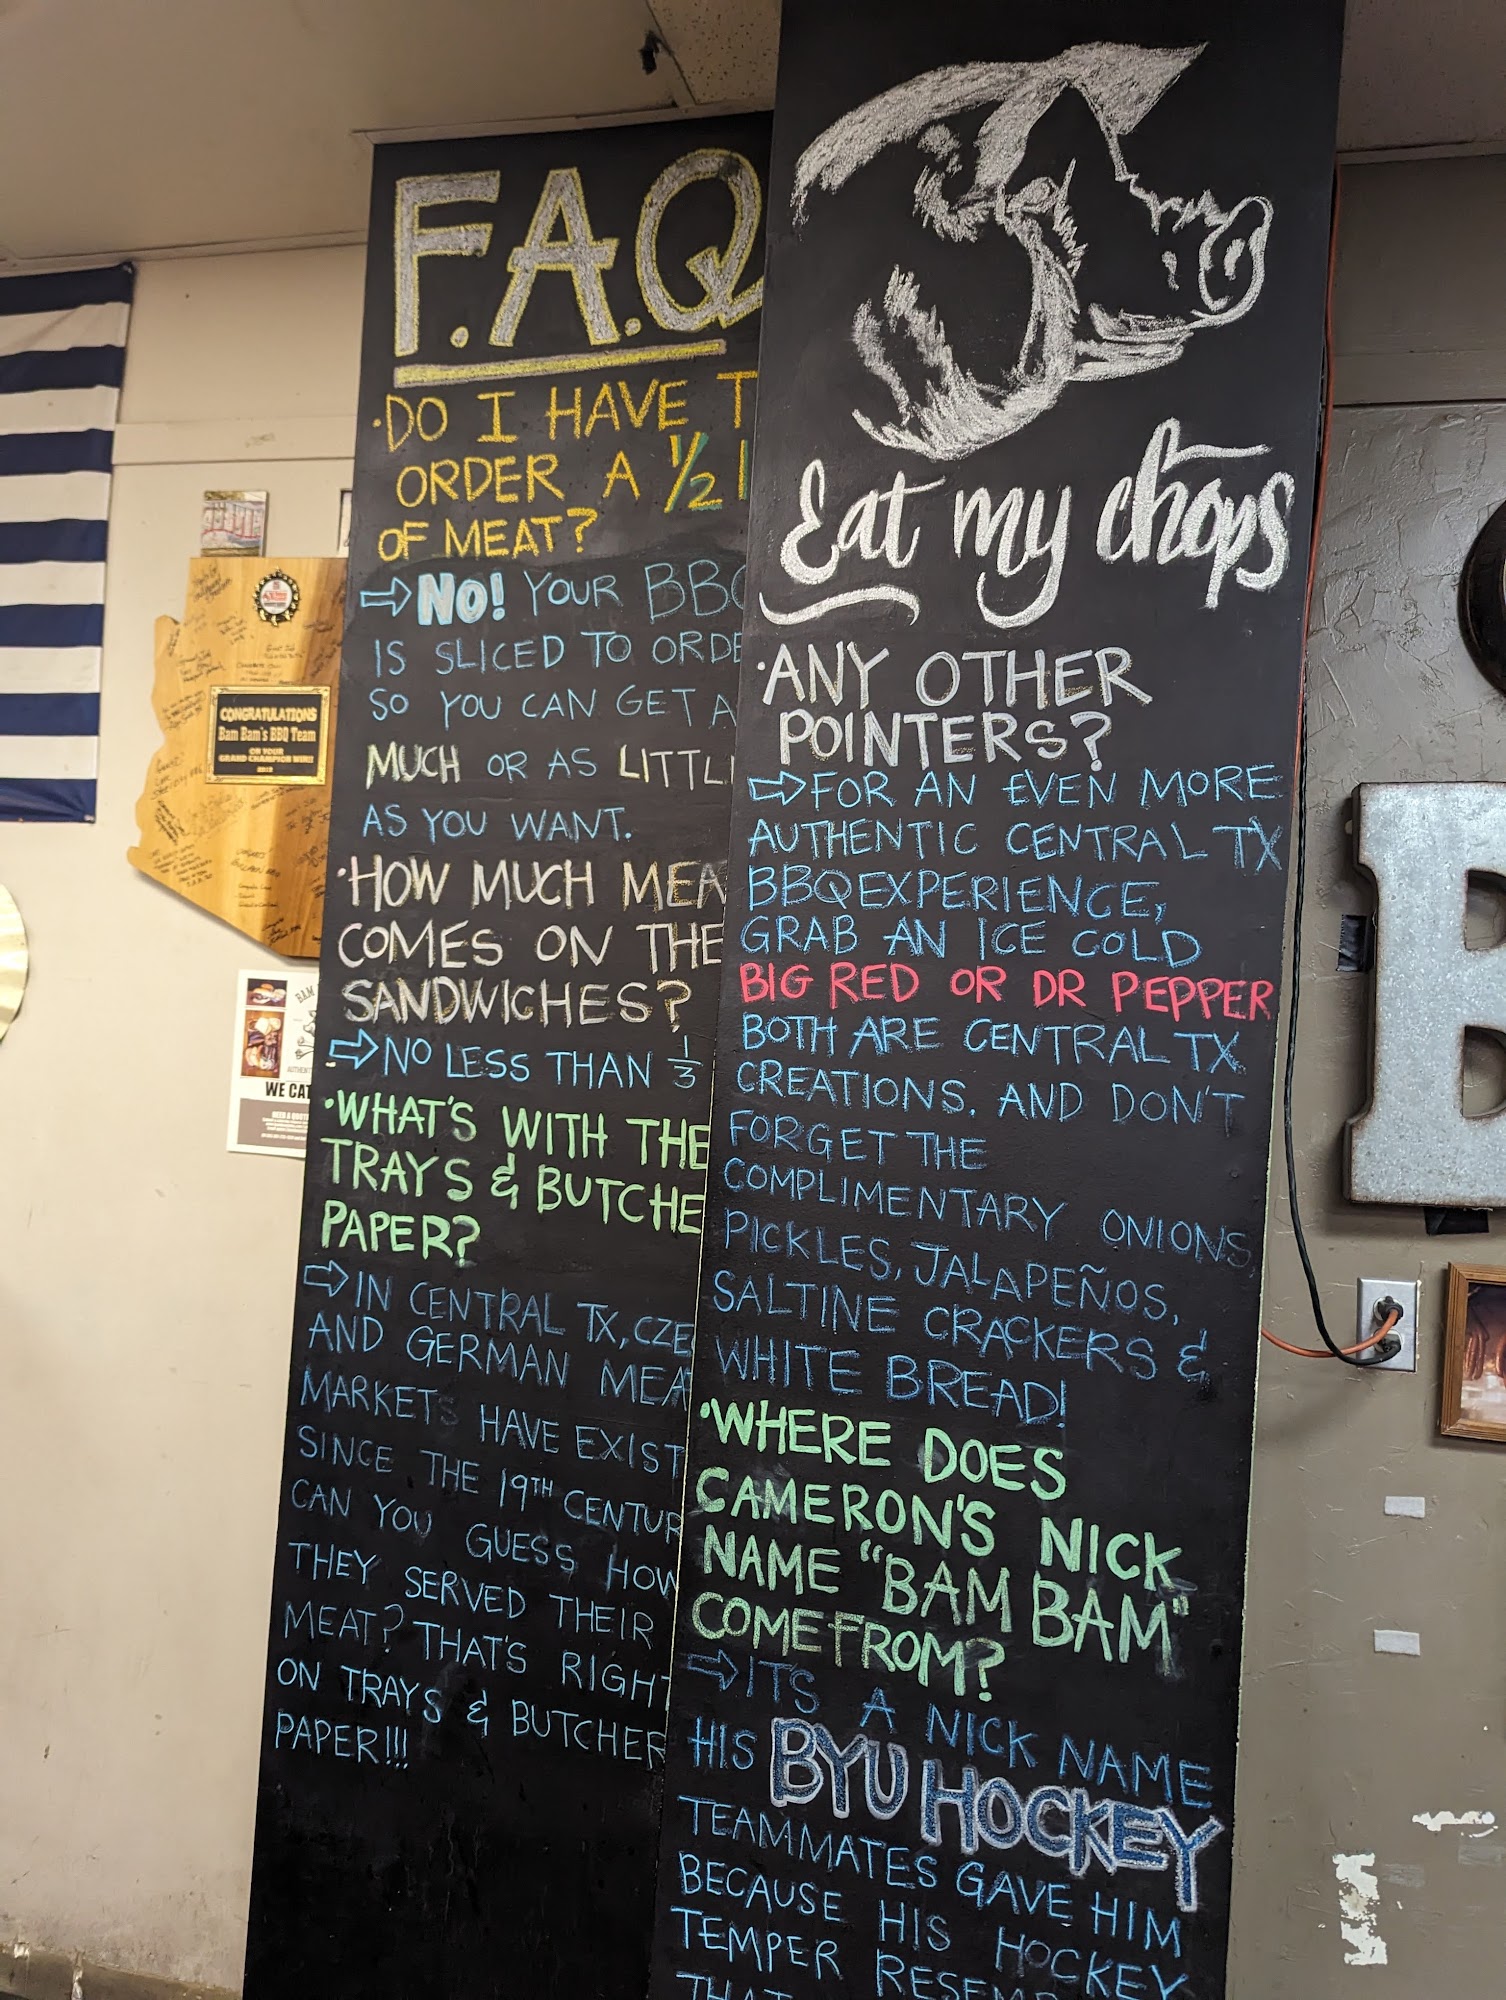 F.A.Q
·DO I HAVE T
ORDER A 1/2 l
OF MEAT?
⇨ NO! YOUR BBQ
IS SLICED TO ORDE
SO YOU CAN GET A
MUCH OR AS LITTL
AS YOU WANT.
·HOW MUCH MEA
COMES ON THE
SANDWICHES?
⇨ NO LESS THAN 1/3
·WHAT'S WITH THE
TRAYS & BUTCHE
PAPER?
⇨ IN CENTRAL TX, CZE
AND GERMAN MEA
MARKETS HAVE EXIST
SINCE THE 19TH CENTUR
CAN YOU GUESS HOW
THEY SERVED THEIR
MEAT? THAT'S RIGHT
ON TRAYS & BUTCHER
PAPER!!!
Eat my chops
·ANY OTHER
POINTERS?
⇨ FOR AN EVEN MORE
AUTHENTIC CENTRAL TX
BBQ EXPERIENCE,
GRAB AN ICE COLD
BIG RED OR DR PEPPER
BOTH ARE CENTRAL TX
CREATIONS. AND DON'T
FORGET THE
COMPLIMENTARY ONIONS,
PICKLES, JALAPEÑOS,
SALTINE CRACKERS &
WHITE BREAD!
·WHERE DOES
CAMERON'S NICK
NAME "BAM BAM"
COME FROM?
⇨ IT'S A NICK NAME
HIS BYU HOCKEY
TEAMMATES GAVE HIM
BECAUSE HIS HOCKEY
TEMPER RESEMB
THAT
CONGRATULATIONS
Bam Bam's BBQ Team
ON YOUR
GRAND CHAMPION WIN!!
BAM
WE CAT
B